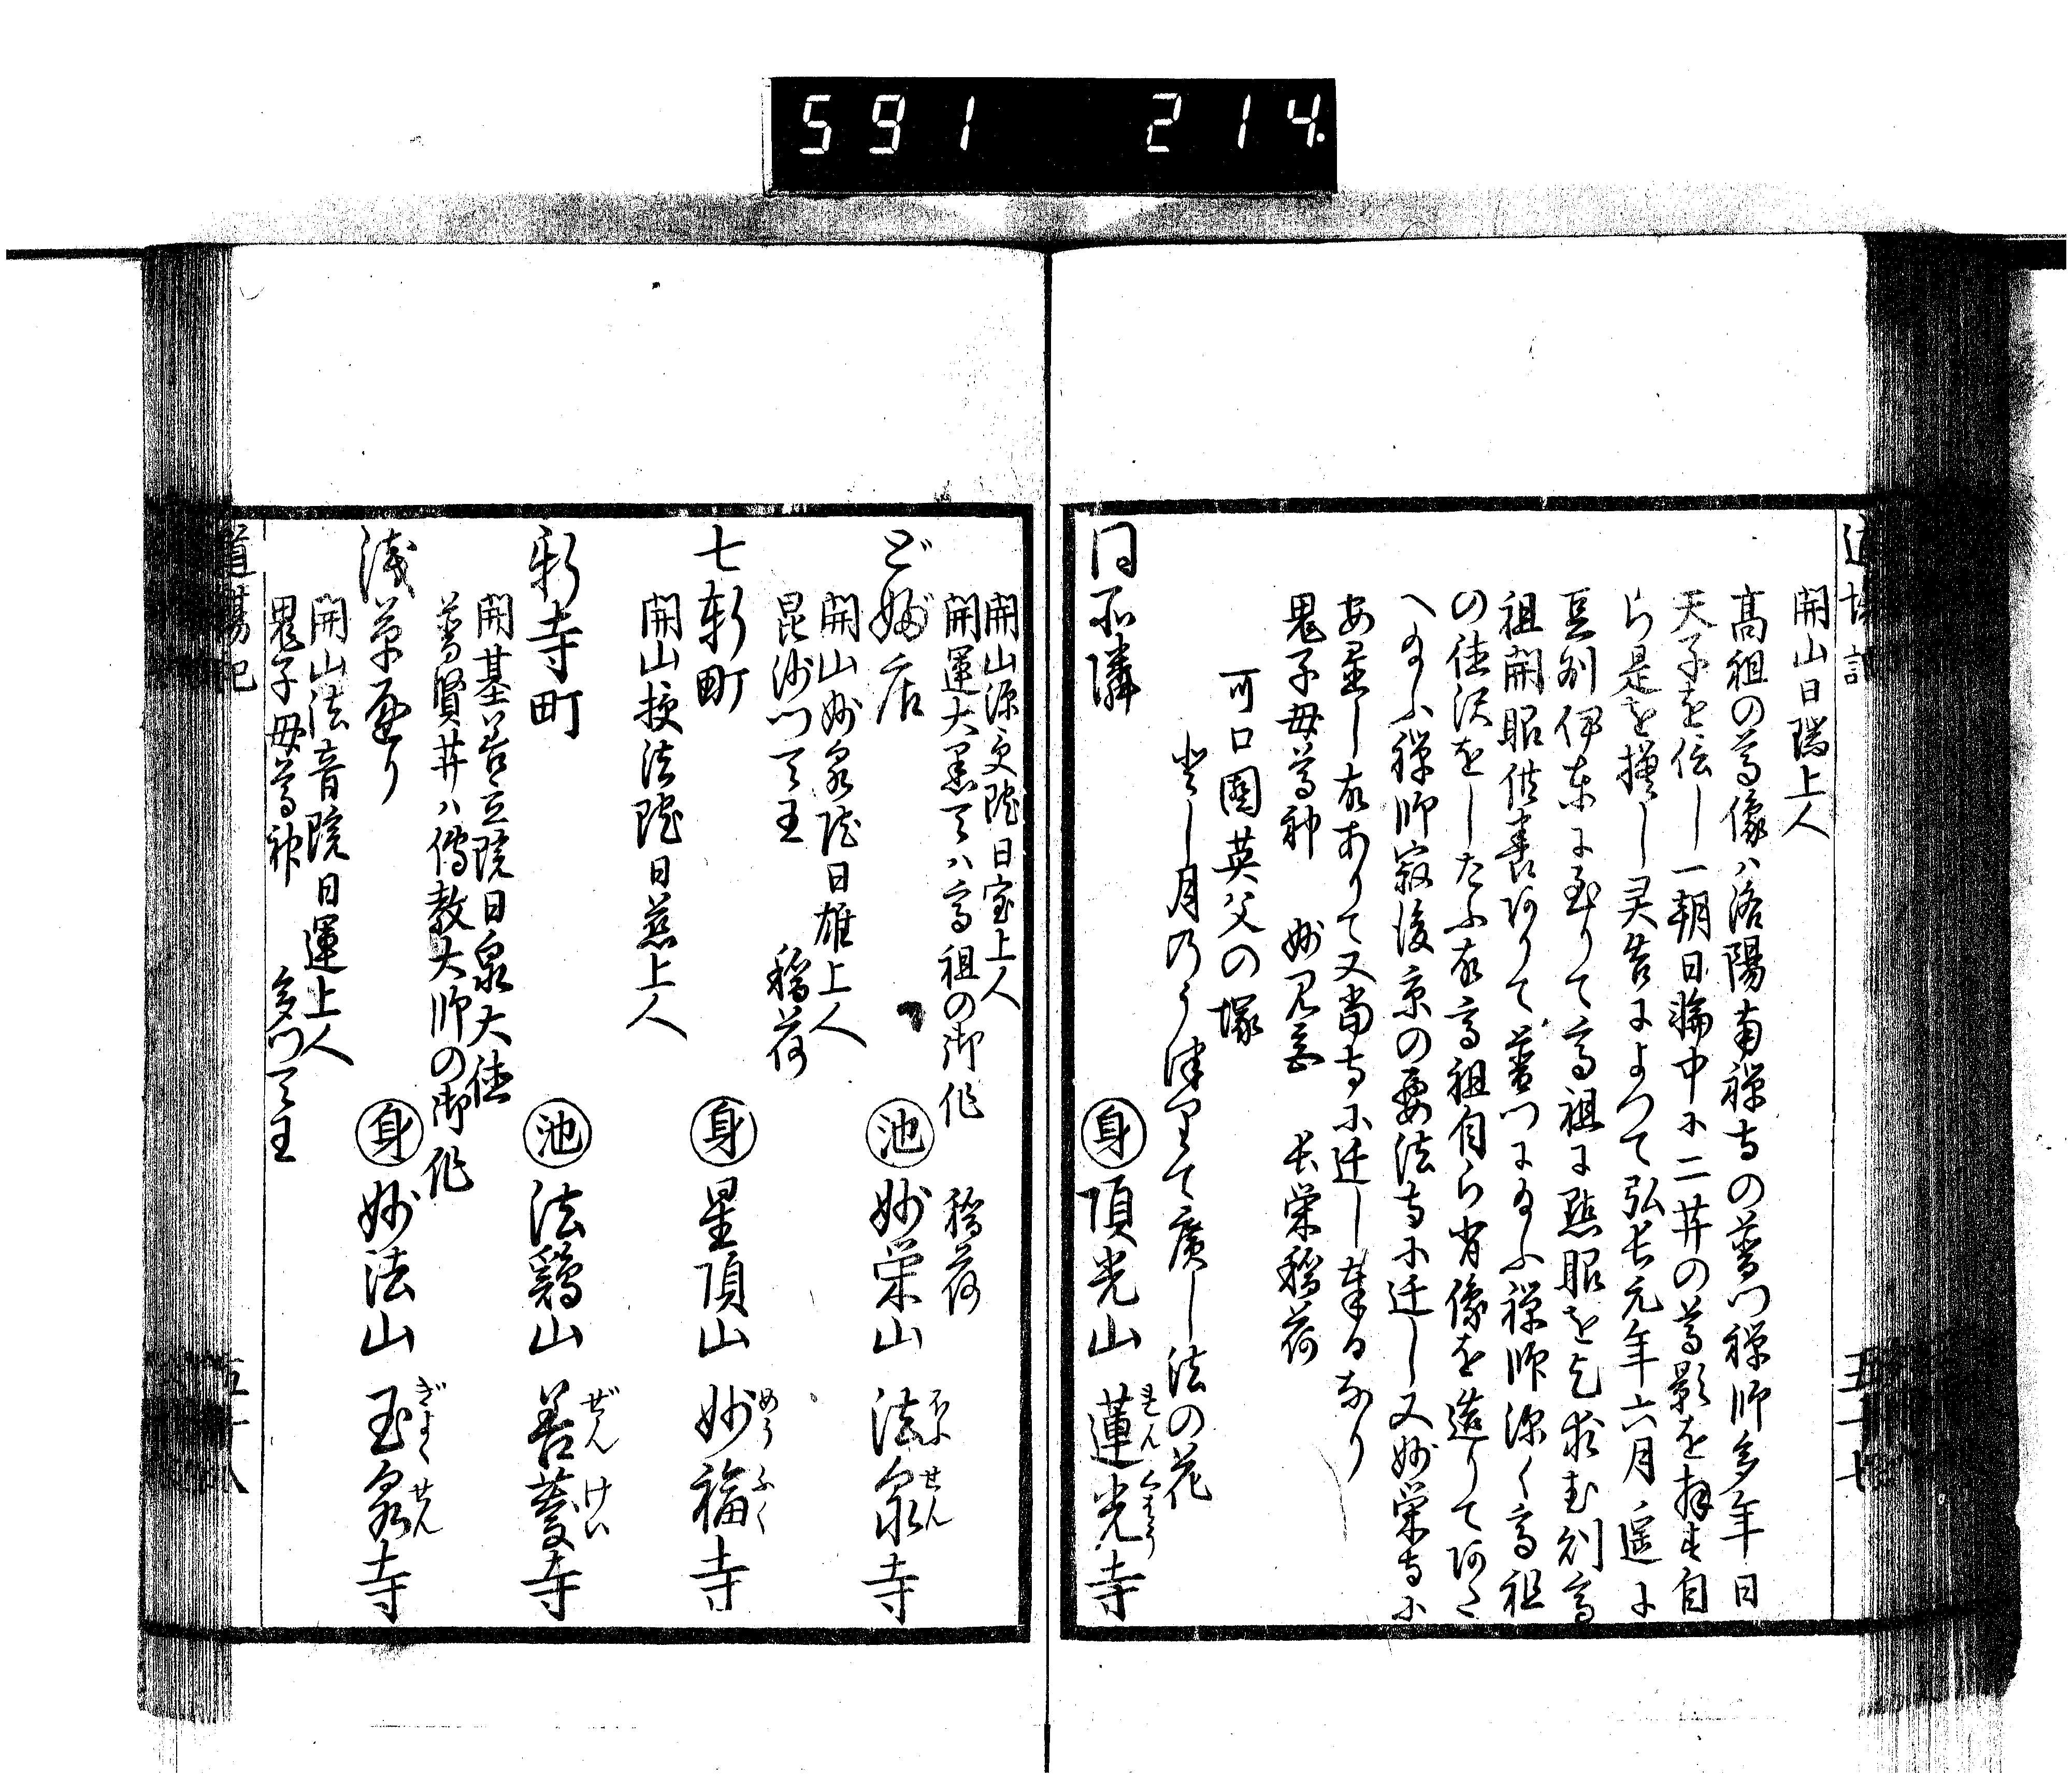 591 214
道場記
開山日瑞上人
高祖の尊像ハ洛陽南禅寺の普門禅師多年日
天子を信し一朝日輪中に二菩薩の尊影を拝す自
ら是を摸し灵告によつて弘長元年六月遥に
豆州伊東に到りて高祖に点眼を乞求む則高
祖開眼供養ありて普門に
の徳沢をしたふ故高祖自ら肖像を造りてあた
へ給ふ禅師寂後京の要法寺に迁し又妙栄寺に
安置し故ありて又当寺に迁し奉るなり
鬼子母尊神 妙見宮 長栄稲荷
可口園英父の塚
月のう 廣し法の花
同所隣 身 頂光山 蓮光寺
五十七
開山源交院日宝上人
開運大黒天ハ高祖の御作 稲荷
どぶ店 池 妙栄山 法泉寺
開山妙泉院日雄上人
毘沙門天王 稲荷
七軒町 身 星頂山 妙福寺
めう ふく
開山授法院日慈上人
新寺町 池 法鶏山 善慶寺
ぜん けい
開基善立院日泉大徳
普賢菩薩ハ傳教大師の御作
浅草通り 身 妙法山 玉泉寺
ぎよく せん
開山法音院日運上人
鬼子母尊神 多門天王
道場記
五十八